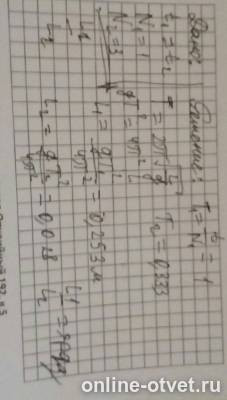 Дано:
t₁ = t₂
N₁ = 1
N₂ = 3
L₁
L₂
Решение: T₁ = t/N₁ = 1
T = 2π√(L/g) T₂ = 0,333
gT² = 4π²L
L₁ = gT₁²/4π² = 0,253 м
L₂ = gT₂²/4π² = 0,028 L₁/L₂ =
online-otvet.ru